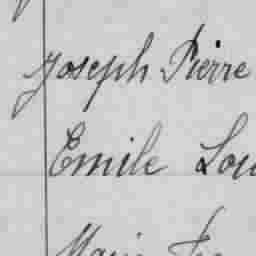 Joseph Pierre
Emile Lou